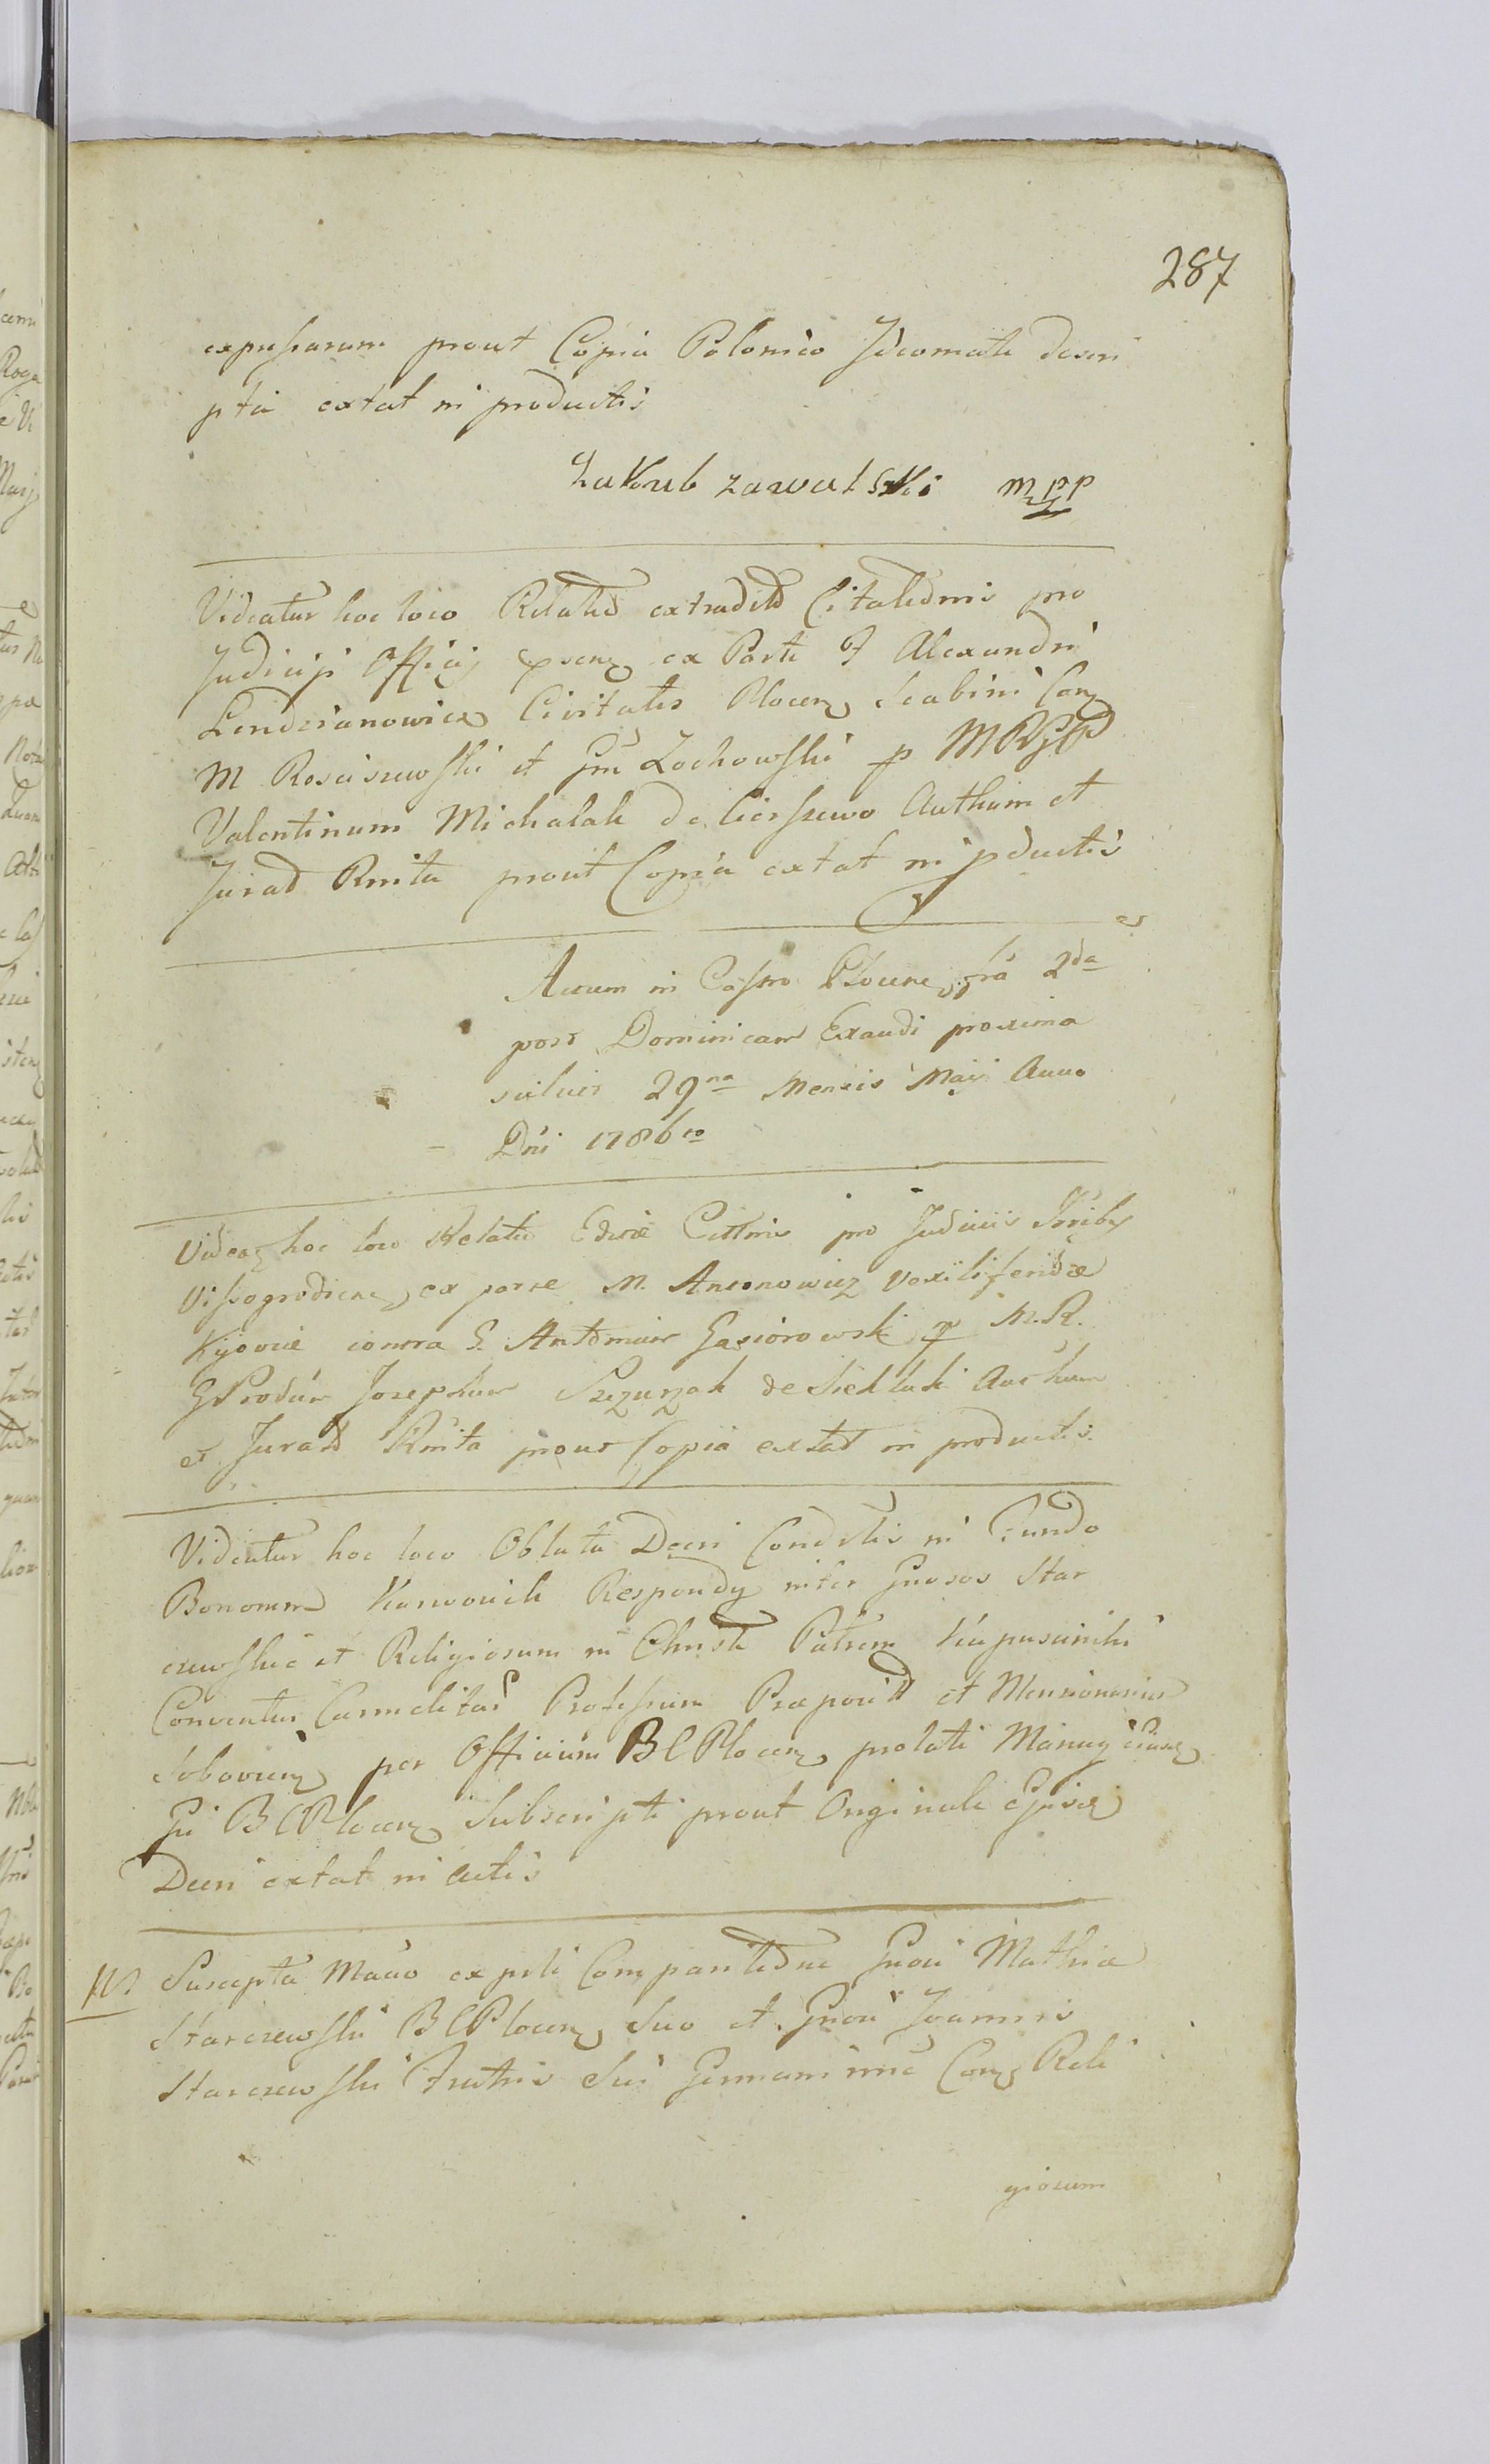 287
expressarum prout Copia Polonico Idiomate descri
pta extat in productis
Jakub zawadzki mpp
Videatur hoc loco Relatio extradit Citationis pro
Judicijs Officij ex Parte Alexandri
Lendzianowicz Civitatis Plocen Scabini Con
M Rosciszewski et Gm Zochowski p MRGP
Valentinum Michalak de Cierszewo Authum et
Jurad Rnita prout Copia extat in pductis
Actum in Castro Plocen fria 2da
post Dominicam Exaudi proxima
scilicet 29na Mensis Maji Anno
Dni 1786to
Videa hoc loco Relatio Cittnis pro Judiciis
Vissogrodien ex parte M. Antonowicz Vexiliferidae
Kijoviae contra G. Antonium Gąsiorowski p M.R.
GProdum Josephum Szczurzak de Siedluki Authum
et Jurad Rnita prout Copia extat in productis
Videatur hoc loco Oblata Decri Condtis in Fundo
Bonorum Karwowik Respondy inter Gnosos Star
czewskie et Religiosum in Christo Patrem Kapuscinski
Conventus Carmelitar Professum Praeposid et Mensionarios
per Officium BCPlocen prolati Manuq
Gi BCPlocen Subscripti prout Originale
Decri extat in Actis
Suscepta Mano ex pti Comparitione Gnosi Mathia
Starczewski BCPlocen Suo et Gnosi Joannis
Starczewski Fratris Sui Germani nne Con Reli
giosum